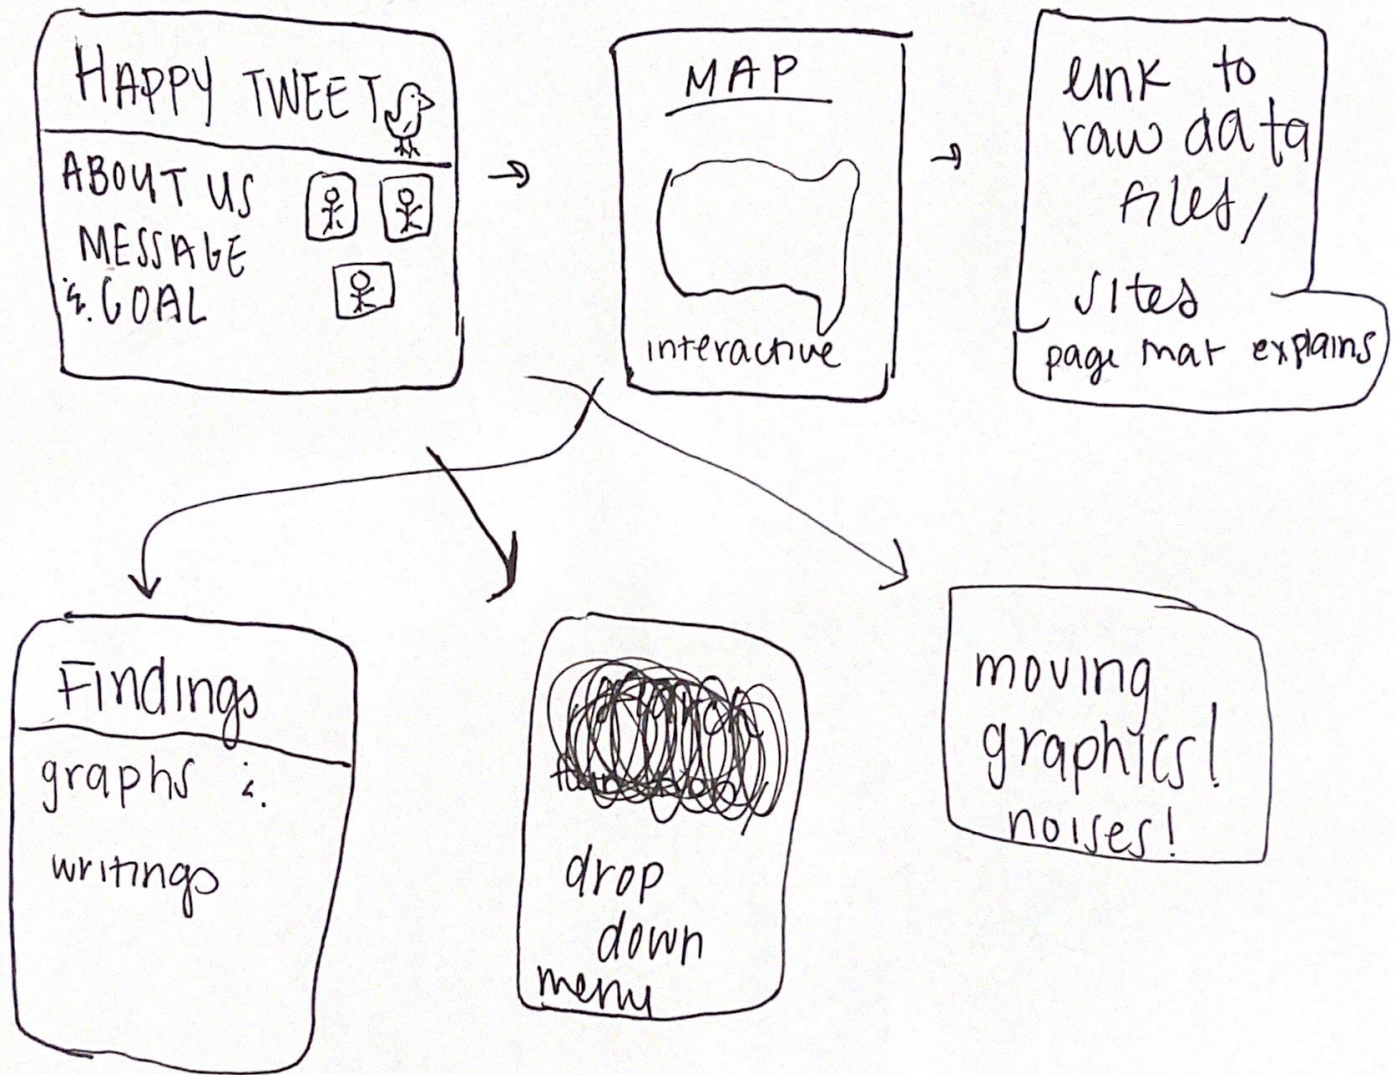 HAPPY TWEET
ABOUT US
MESSAGE
&. GOAL
MAP
interactive
link to
raw data
files/
sites
page that explains
Findings
graphs &.
writings
drop
down
menu
moving
graphics!
noises!